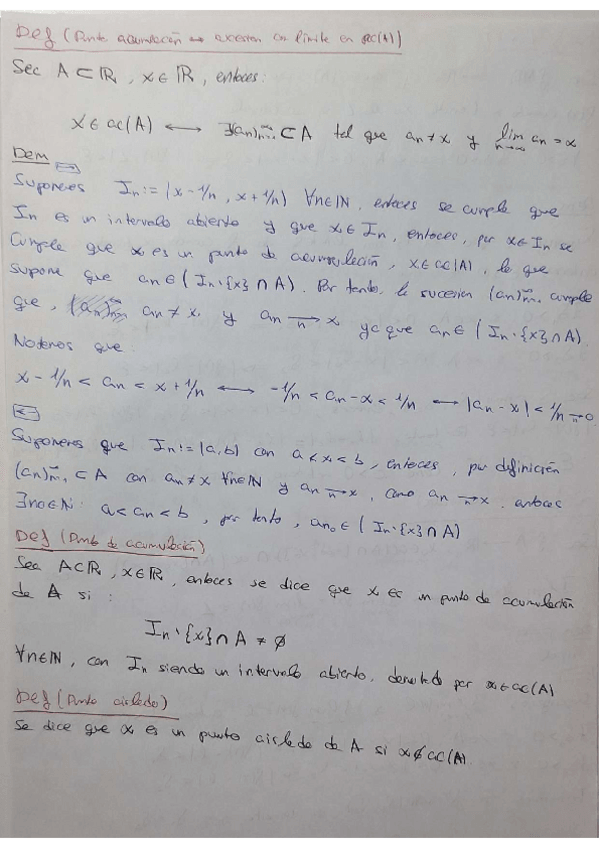 Def (Punto acumulación ↔ sucesión con límite en ac(A))
Sea A ⊂ ℝ, x ∈ ℝ, entonces:
x ∈ ac(A) ⟷ ∃(an)_{n=1}^∞ ⊂ A tal que an ≠ x y lim_{n→∞} an = x
Dem
[→]
Suponemos In := (x - 1/n, x + 1/n) ∀n∈ℕ, entonces se cumple que
In es un intervalo abierto y que x ∈ In, entonces, por x ∈ In se
cumple que x es un punto de acumulación, x ∈ ac(A), lo que
supone que an ∈ (In \ {x} ∩ A). Por tanto, la sucesión (an)_{n=1}^∞ cumple
que, an ≠ x, y an →_n x ya que an ∈ (In \ {x} ∩ A).
Notemos que:
x - 1/n < an < x + 1/n ⟷ -1/n < an - x < 1/n ⟷ |an - x| < 1/n →_n 0.
[←]
Suponemos que In := (a, b) con a < x < b, entonces, por definición
(an)_{n=1}^∞ ⊂ A con an ≠ x ∀n∈ℕ y an →_n x, como an →_n x, entonces
∃n0∈ℕ: a < an < b, por tanto, an0 ∈ (In \ {x} ∩ A)
Def (Punto de acumulación)
Sea A ⊂ ℝ, x ∈ ℝ, entonces se dice que x es un punto de acumulación
de A si:
In \ {x} ∩ A ≠ ∅
∀n∈ℕ, con In siendo un intervalo abierto, denotado por x ∈ ac(A)
Def (Punto aislado)
Se dice que x es un punto aislado de A si x ∉ ac(A)